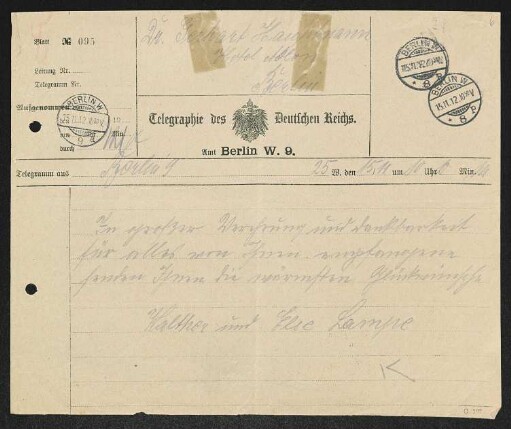 Blatt № 095
Dr. Gerhart Hauptmann
Hotel Adlon
Berlin
Leitung Nr.
Telegramm Nr.
Aufgenommen
den 19
um Min.
durch
BERLIN W
15.11.12
9 a
BERLIN W
15.11.12
* 8 a
BERLIN W
15.11.12
* 8 a
Telegraphie des Deutschen Reichs.
Amt Berlin W. 9.
Telegramm aus Berlin 9 25 W. den 15.11 um 10 Uhr Min.
In großer Verehrung und Dankbarkeit
für alles von Ihnen empfangene
senden Ihnen die wärmsten Glückwünsche
Walther und Else Lampe